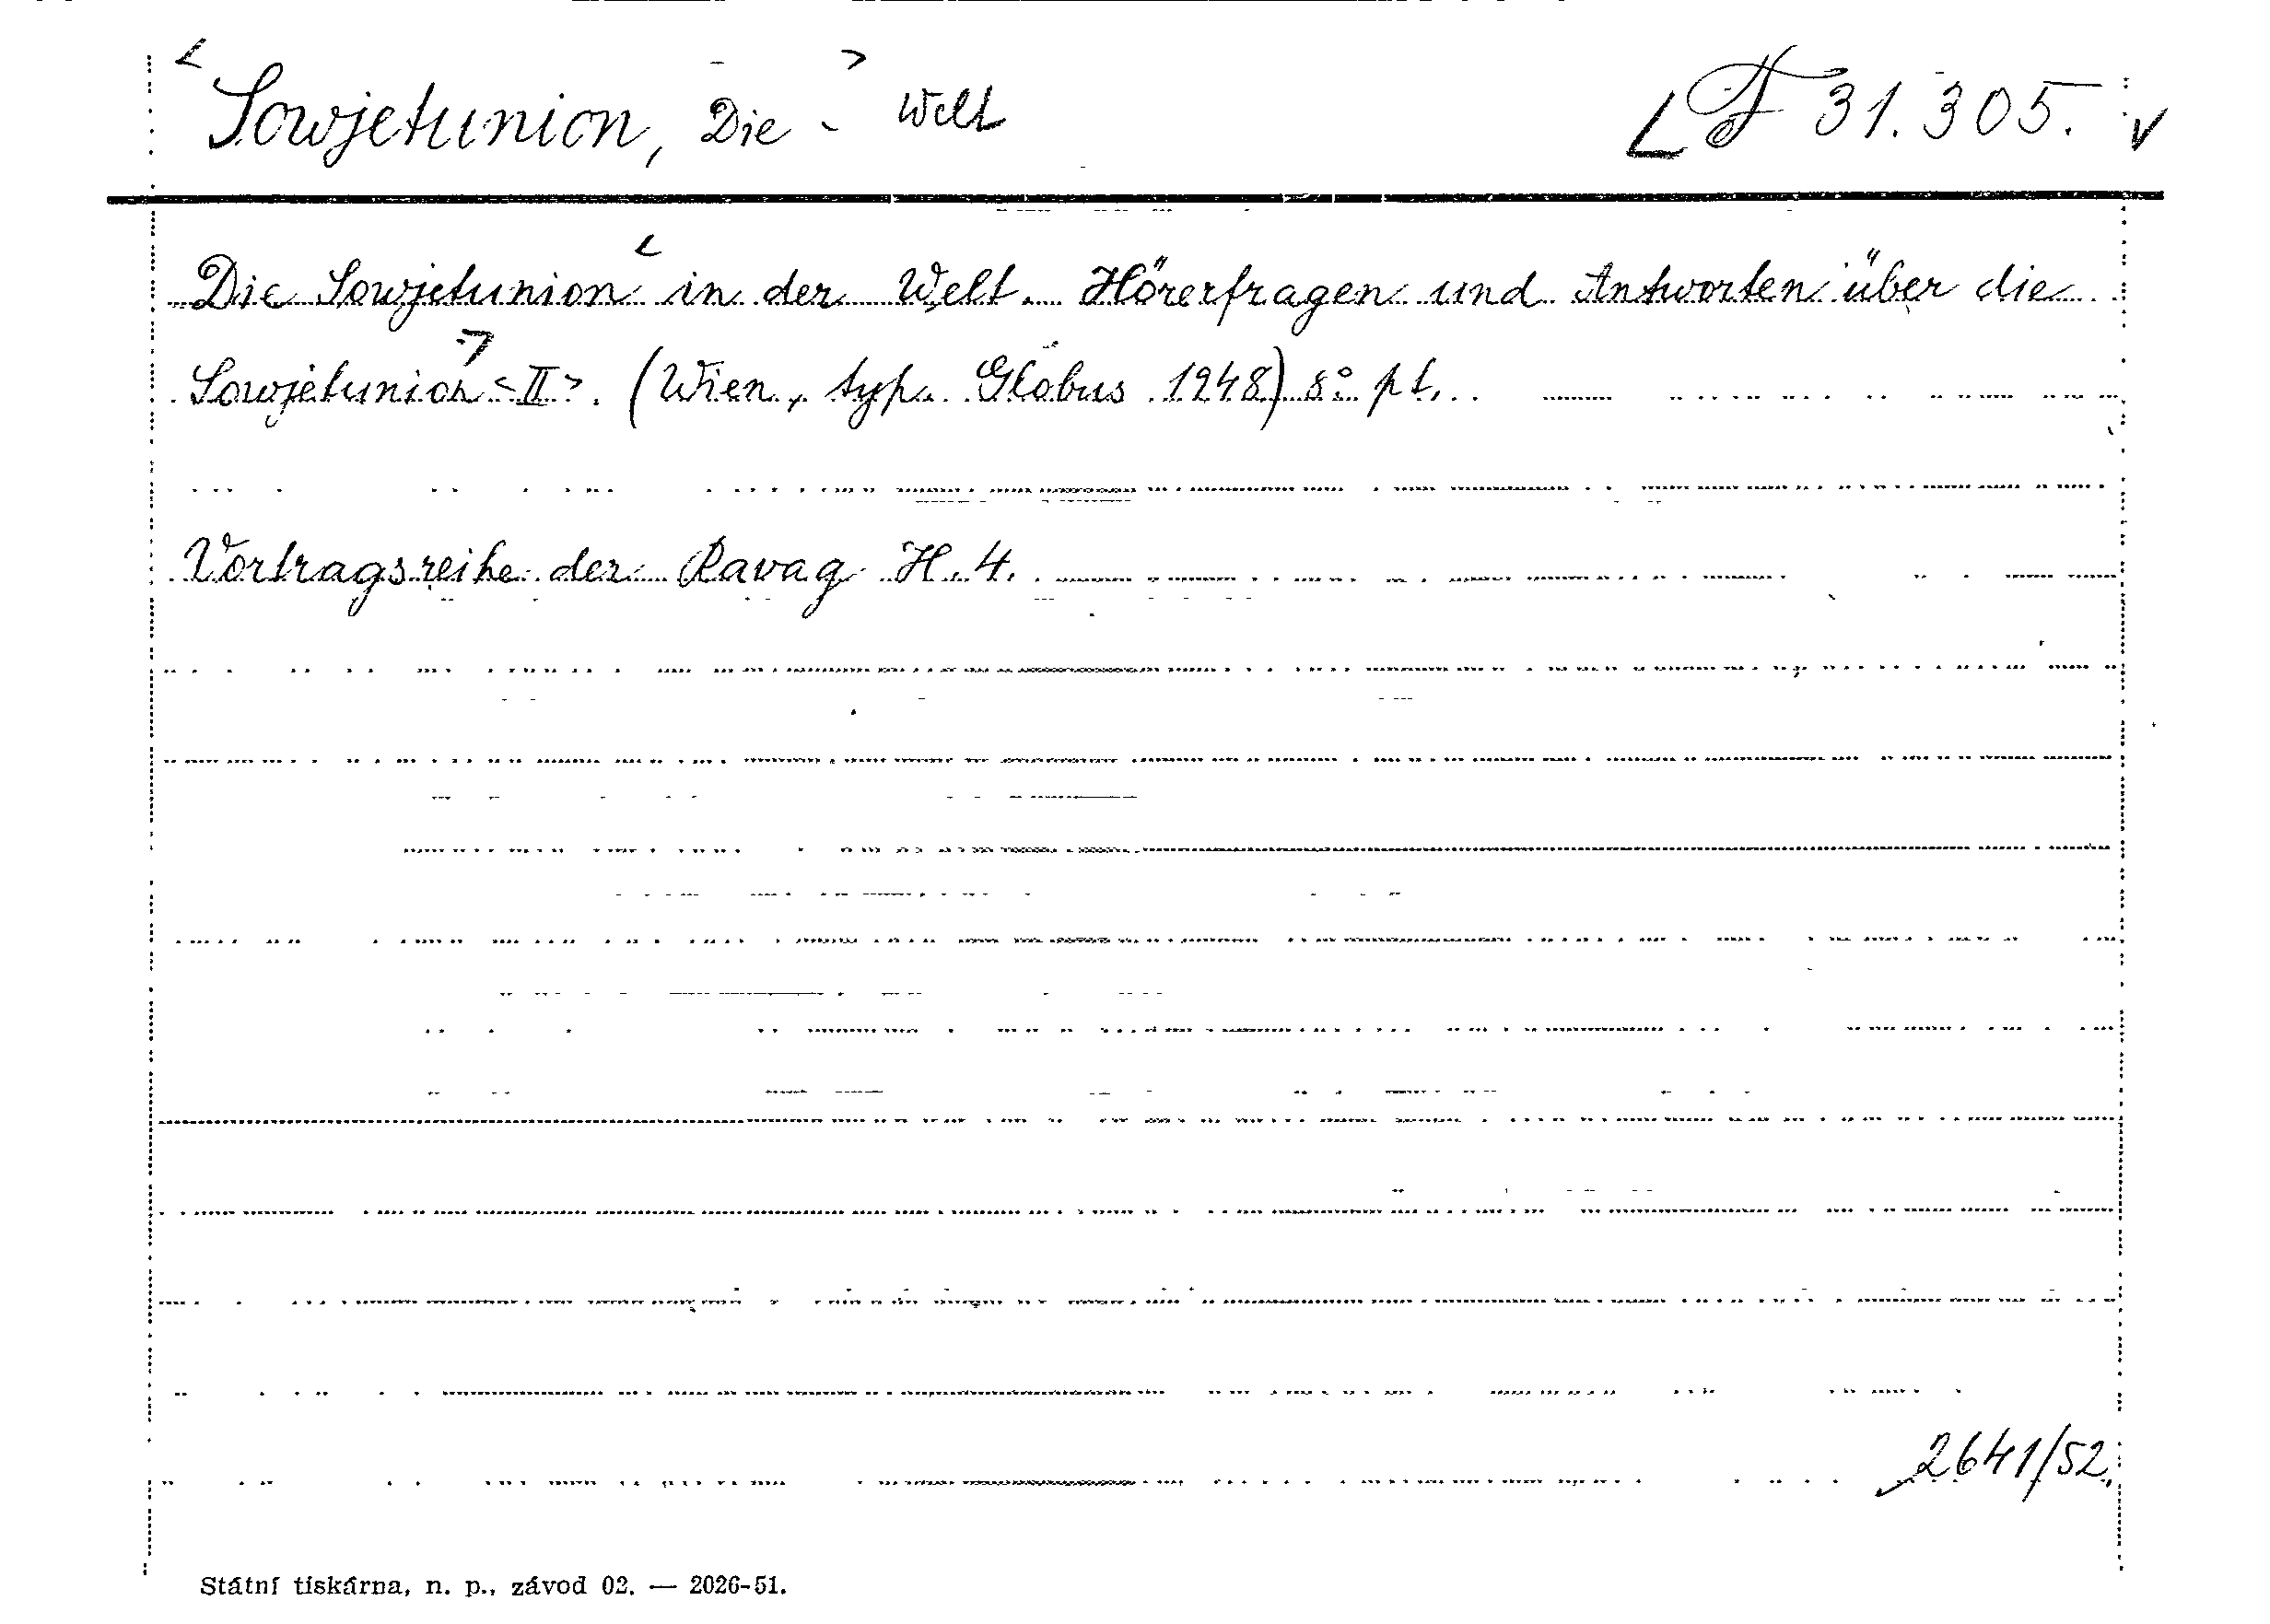 < Sowjetunion, Die - > Welt
F 31.305.
Die Sowjetunion < in der Welt. Hörerfragen und Antworten über die
Sowjetunion > <II>. (Wien, typ. Globus 1948) 8° pt.
Vortragsreihe der Ravag H. 4.
2641/52.
Státní tiskárna, n. p., závod 02. — 2026-51.